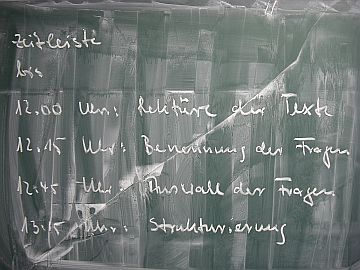 Zeitleiste
bis
12.00 Uhr: Lektüre der Texte
12.15 Uhr: Benennung der Fragen
12.45 Uhr: Auswahl der Fragen
13.15 Uhr: Strukturierung